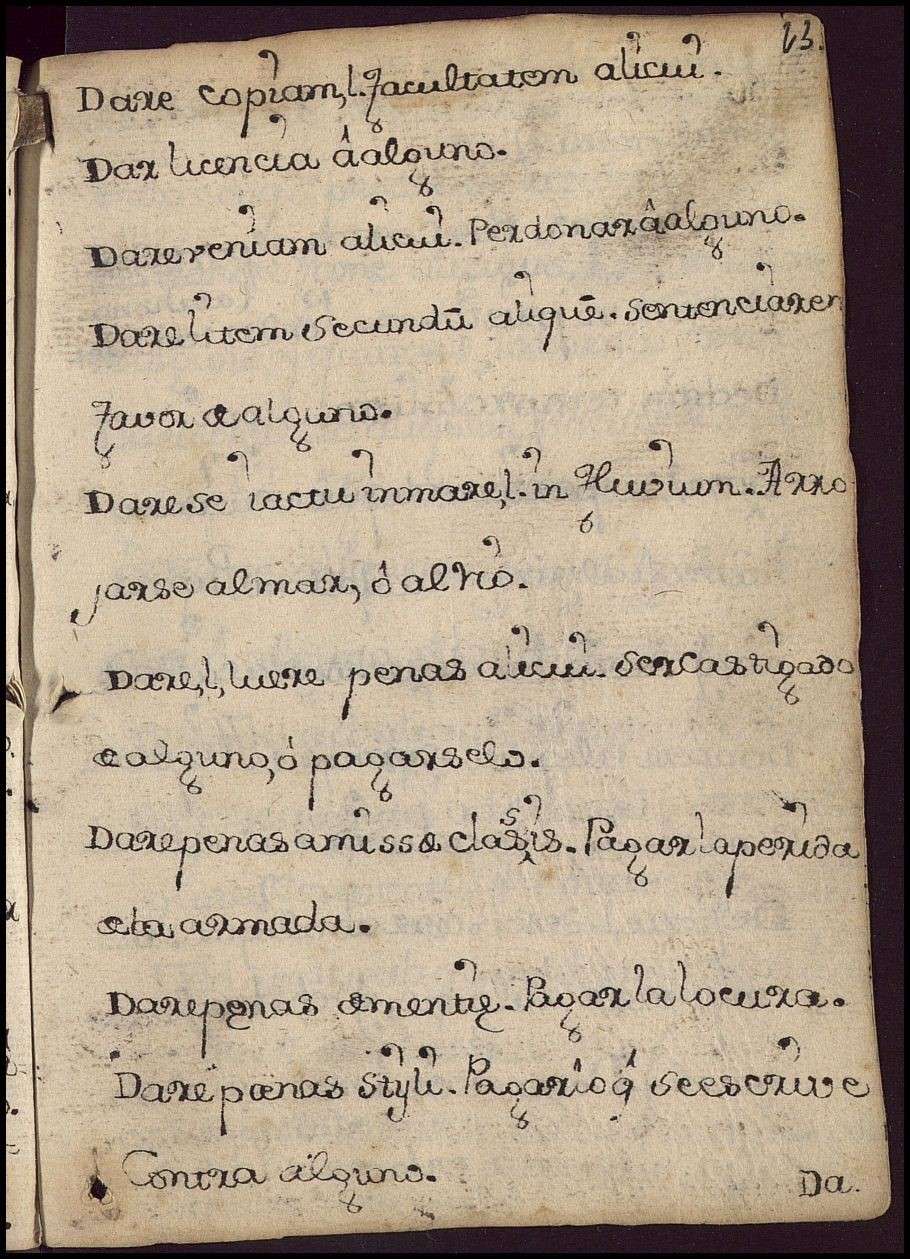 23.
Dare copiam, l. facultatem alicui.
Dar licencia â alguno.
Dare veniam alicui. Perdonar â alguno.
Dare litem secundū aliquē. sentenciar en
favor de alguno.
Dare se iactu in mare, l. in fluvium. Arro
jarse al mar, ô al rio.
Dare, l, luere penas alicui. ser castigado
de alguno, ó pagarselo.
Dare penas amissæ classis. Pagar la perida
de la armada.
Dare pęnas dementię. Pagar la locura.
Dare pœnas styli. Pagar lo q̂ se escrive
Contra alguno.
Da.